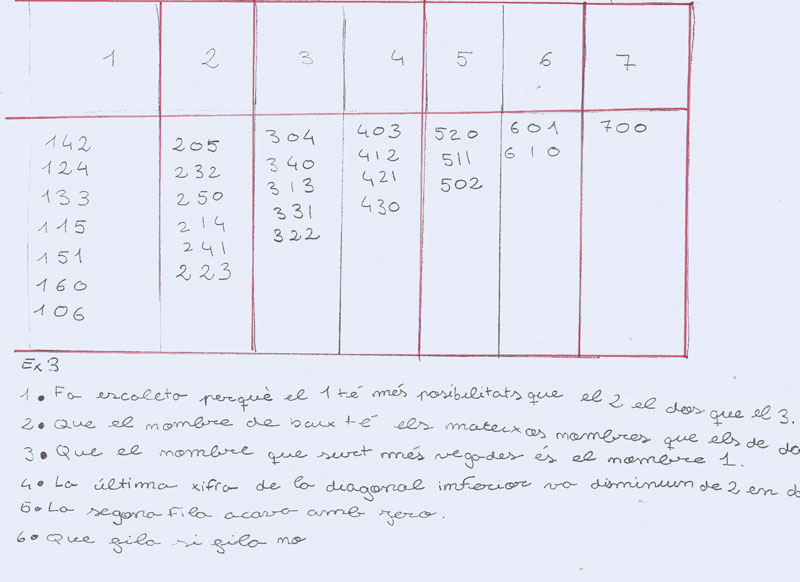 1 2 3 4 5 6 7
142 205 304 403 520 601 700
124 232 340 412 511 610
133 250 313 421 502
115 214 331 430
151 241 322
160 223
106
Ex 3
1. Fa escaleta perquè el 1 té més posibilitats que el 2 el dos que el 3.
2. Que el nombre de baix té els mateixos nombres que els de da
3. Que el nombre que surt més vegades és el nombre 1.
4. La última xifra de la diagonal inferior va disminuin de 2 en d
5. La segona fila acava amb zero.
6. Que fila si fila no